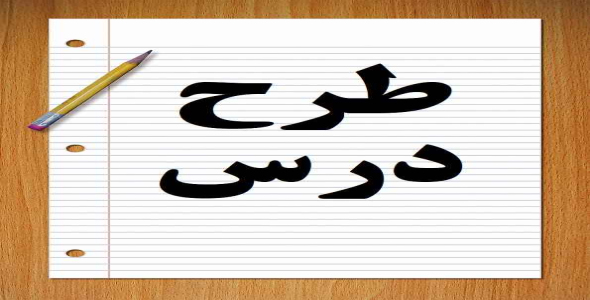 طرح
درس